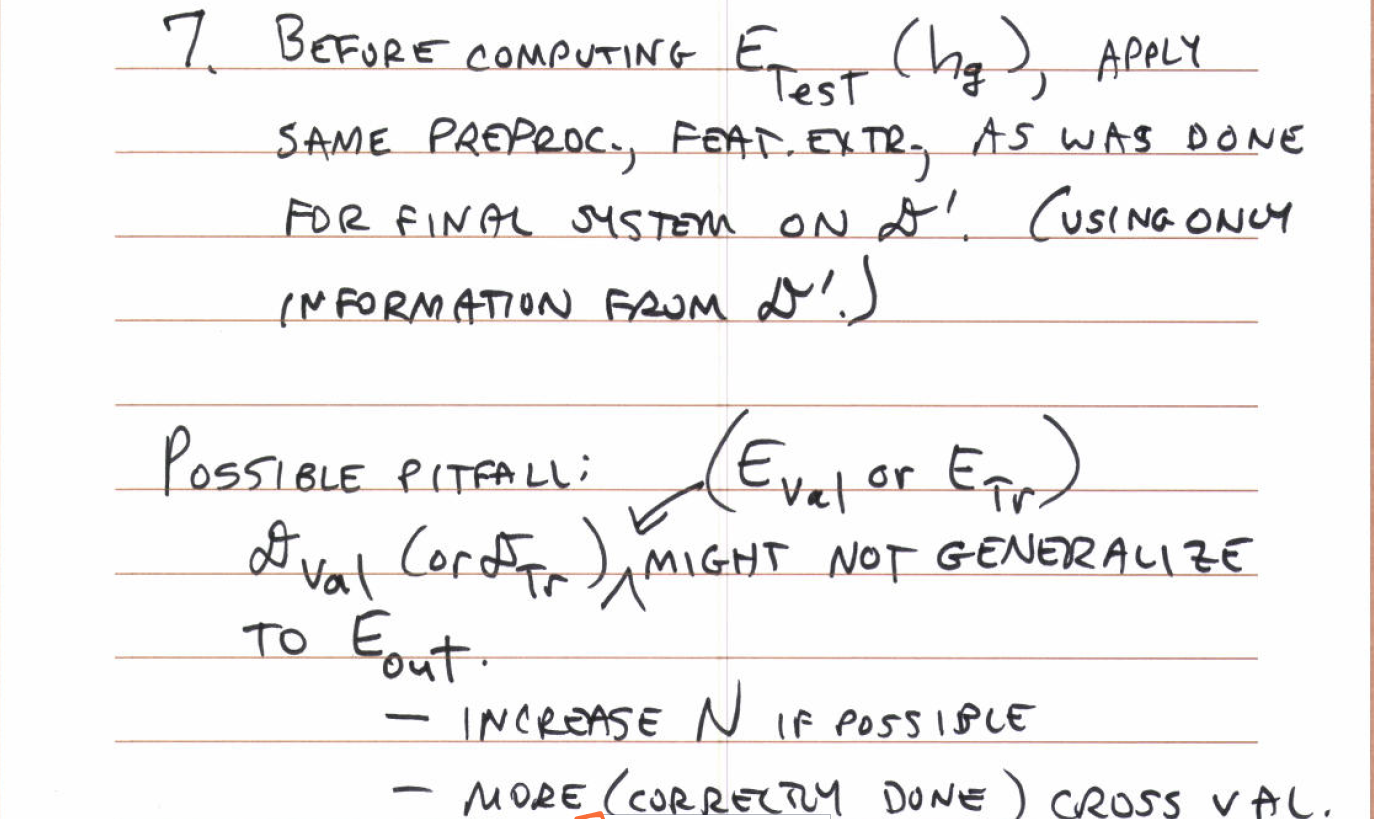 7. BEFORE COMPUTING E_Test (h_g), APPLY
SAME PREPROC., FEAT. EXTR., AS WAS DONE
FOR FINAL SYSTEM ON 𝒟'. (USING ONLY
INFORMATION FROM 𝒟'.)
POSSIBLE PITFALL: (E_Val or E_Tr)
𝒟_Val (or 𝒟_Tr) ^ MIGHT NOT GENERALIZE
TO E_out.
— INCREASE N IF POSSIBLE
— MORE (CORRECTLY DONE) CROSS VAL.